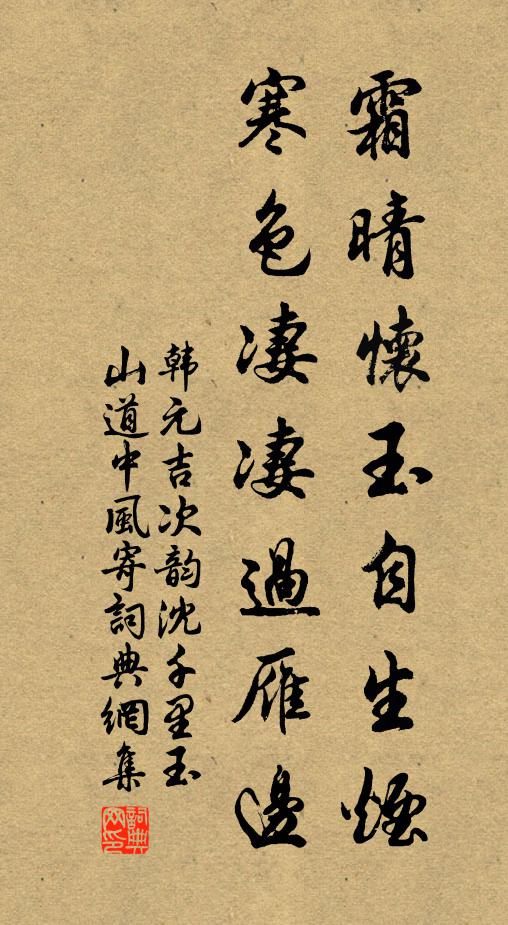 霜晴懷玉自生煙
寒色淒淒過雁邊
韩元吉次韵沈千里玉
山道中風寄詞典網集
詞典網印